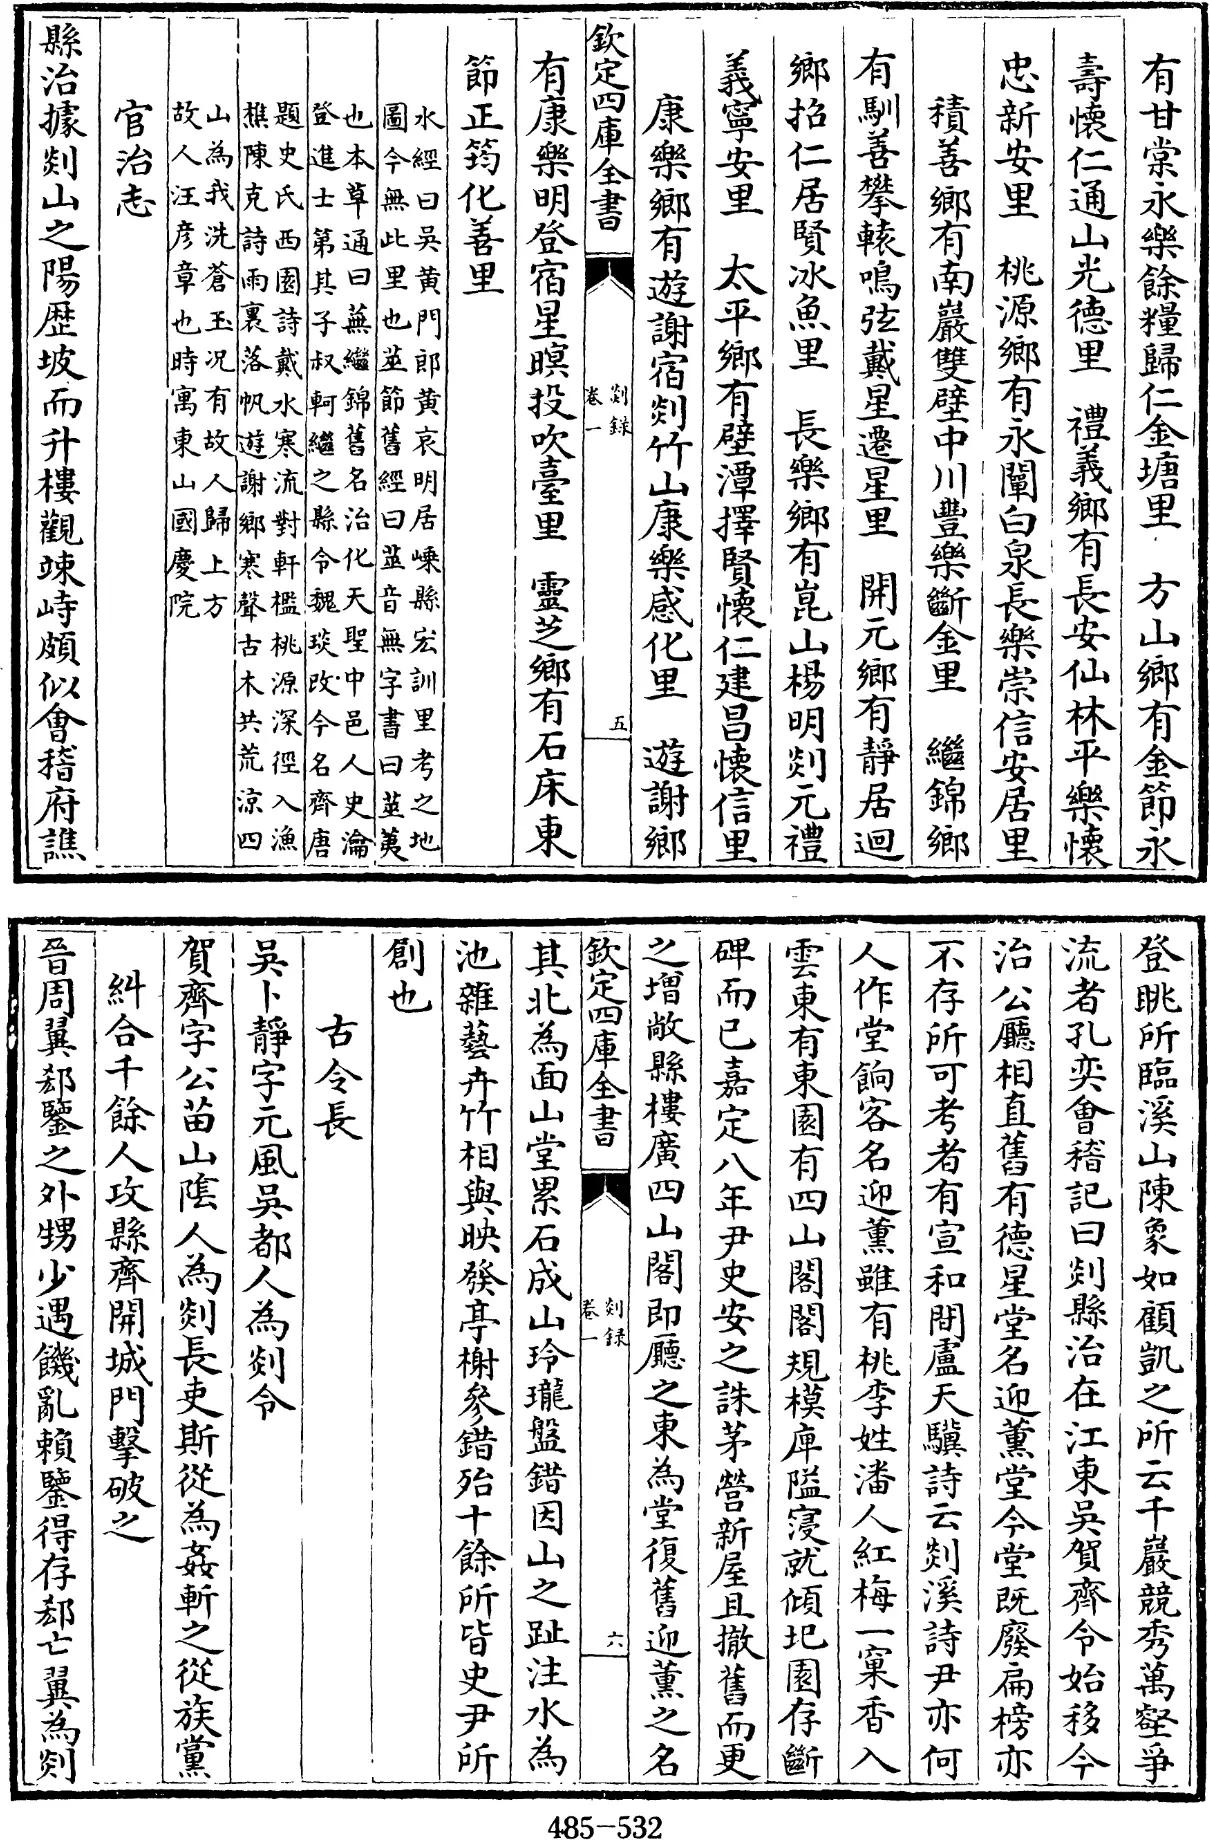 有甘棠永樂餘糧歸仁金塘里　方山鄉有金節永
壽懷仁通山光德里　禮義鄉有長安仙林平樂懷
忠新安里　桃源鄉有永闡白泉長樂崇信安居里
積善鄉有南巖雙壁中川豐樂斷金里　繼錦鄉
有馴善攀轅鳴弦戴星遷星里　開元鄉有靜居迴
鄉招仁居賢冰魚里　長樂鄉有崑山楊明剡元禮
義寧安里　太平鄉有壁潭擇賢懷仁建昌懷信里
康樂鄉有遊謝宿剡竹山康樂感化里　遊謝鄉
欽定四庫全書
剡録
卷一
五
有康樂明登宿星暝投吹臺里　靈芝鄉有石床東
節正筠化善里
水經曰吳黃門郎黃哀明居嵊縣宏訓里考之地
圖今無此里也莁節舊經曰莁音無字書曰莁荑
也本草通曰蕪繼錦舊名治化天聖中邑人史瀹
登進士第其子叔軻繼之縣令魏琰改今名齊唐
題史氏西園詩戴水寒流對軒檻桃源深徑入漁
樵陳克詩雨裏落帆遊謝鄉寒聲古木共荒涼四
山為我洗蒼玉况有故人歸上方
故人汪彥章也時寓東山國慶院
官治志
縣治據剡山之陽歷坡而升樓觀竦峙頗似會稽府譙
登眺所臨溪山陳象如顧凱之所云千巖競秀萬壑爭
流者孔奕會稽記曰剡縣治在江東吳賀齊令始移今
治公廳相直舊有德星堂名迎薰堂今堂既廢扁榜亦
不存所可考者有宣和間盧天驥詩云剡溪詩尹亦何
人作堂餉客名迎薰雖有桃李姓潘人紅梅一窠香入
雲東有東園有四山閣閣規模庳隘寖就傾圯園存斷
碑而已嘉定八年尹史安之誅茅營新屋且撤舊而更
之增敞縣樓廣四山閣即廳之東為堂復舊迎薰之名
欽定四庫全書
剡録
卷一
六
其北為面山堂累石成山玲瓏盤錯因山之趾注水為
池雜藝卉竹相與映發亭榭參錯殆十餘所皆史尹所
創也
古令長
吳卜靜字元風吳都人為剡令
賀齊字公苗山隂人為剡長吏斯從為姦斬之從族黨
糾合千餘人攻縣齊開城門擊破之
晉周翼郄鑒之外甥少遇饑亂賴鑒得存郄亡翼為剡
485-532